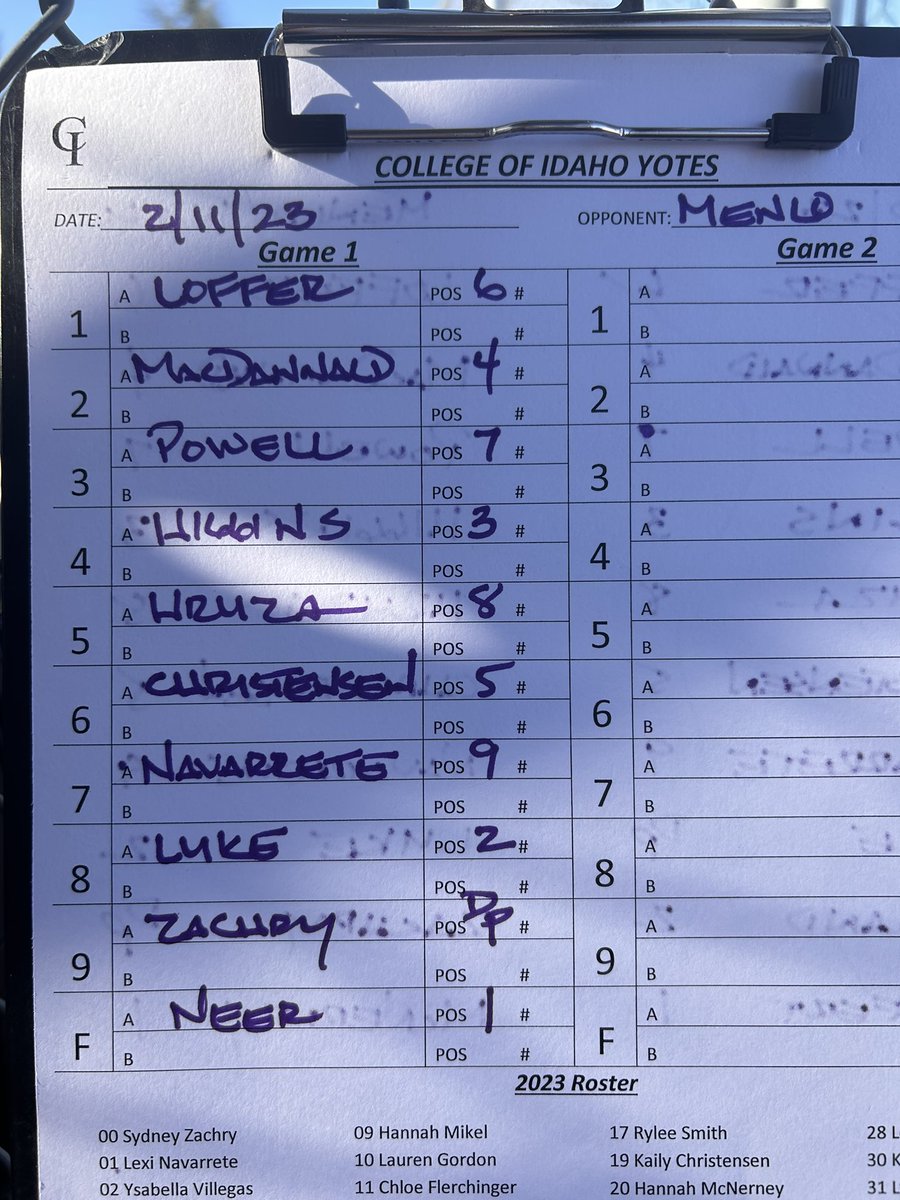 CI
COLLEGE OF IDAHO YOTES
DATE: 2/11/23 OPPONENT: MENLO
Game 1 Game 2
1 A LOFFER POS 6 # 1 A
B POS # B
2 A MACDANNALD POS 4 # 2 A
B POS # B
3 A POWELL POS 7 # 3 A
B POS # B
4 A HIGGINS POS 3 # 4 A
B POS # B
5 A HRUZA POS 8 # 5 A
B POS # B
6 A CHRISTENSEN POS 5 # 6 A
B POS # B
7 A NAVARRETE POS 9 # 7 A
B POS # B
8 A LUKE POS 2 # 8 A
B POS # B
9 A ZACHRY POS DP # 9 A
B POS # B
F A NEER POS 1 # F A
B POS # B
2023 Roster
00 Sydney Zachry 09 Hannah Mikel 17 Rylee Smith 28
01 Lexi Navarrete 10 Lauren Gordon 19 Kaily Christensen 30
02 Ysabella Villegas 11 Chloe Flerchinger 20 Hannah McNerney 31